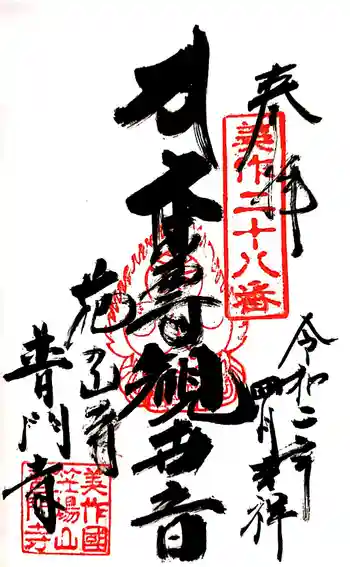 奉拝
美作二十八番
令和二年
四月吉祥
寿観世音
花の山寺
普門寺
美作國
笠場山
普門寺